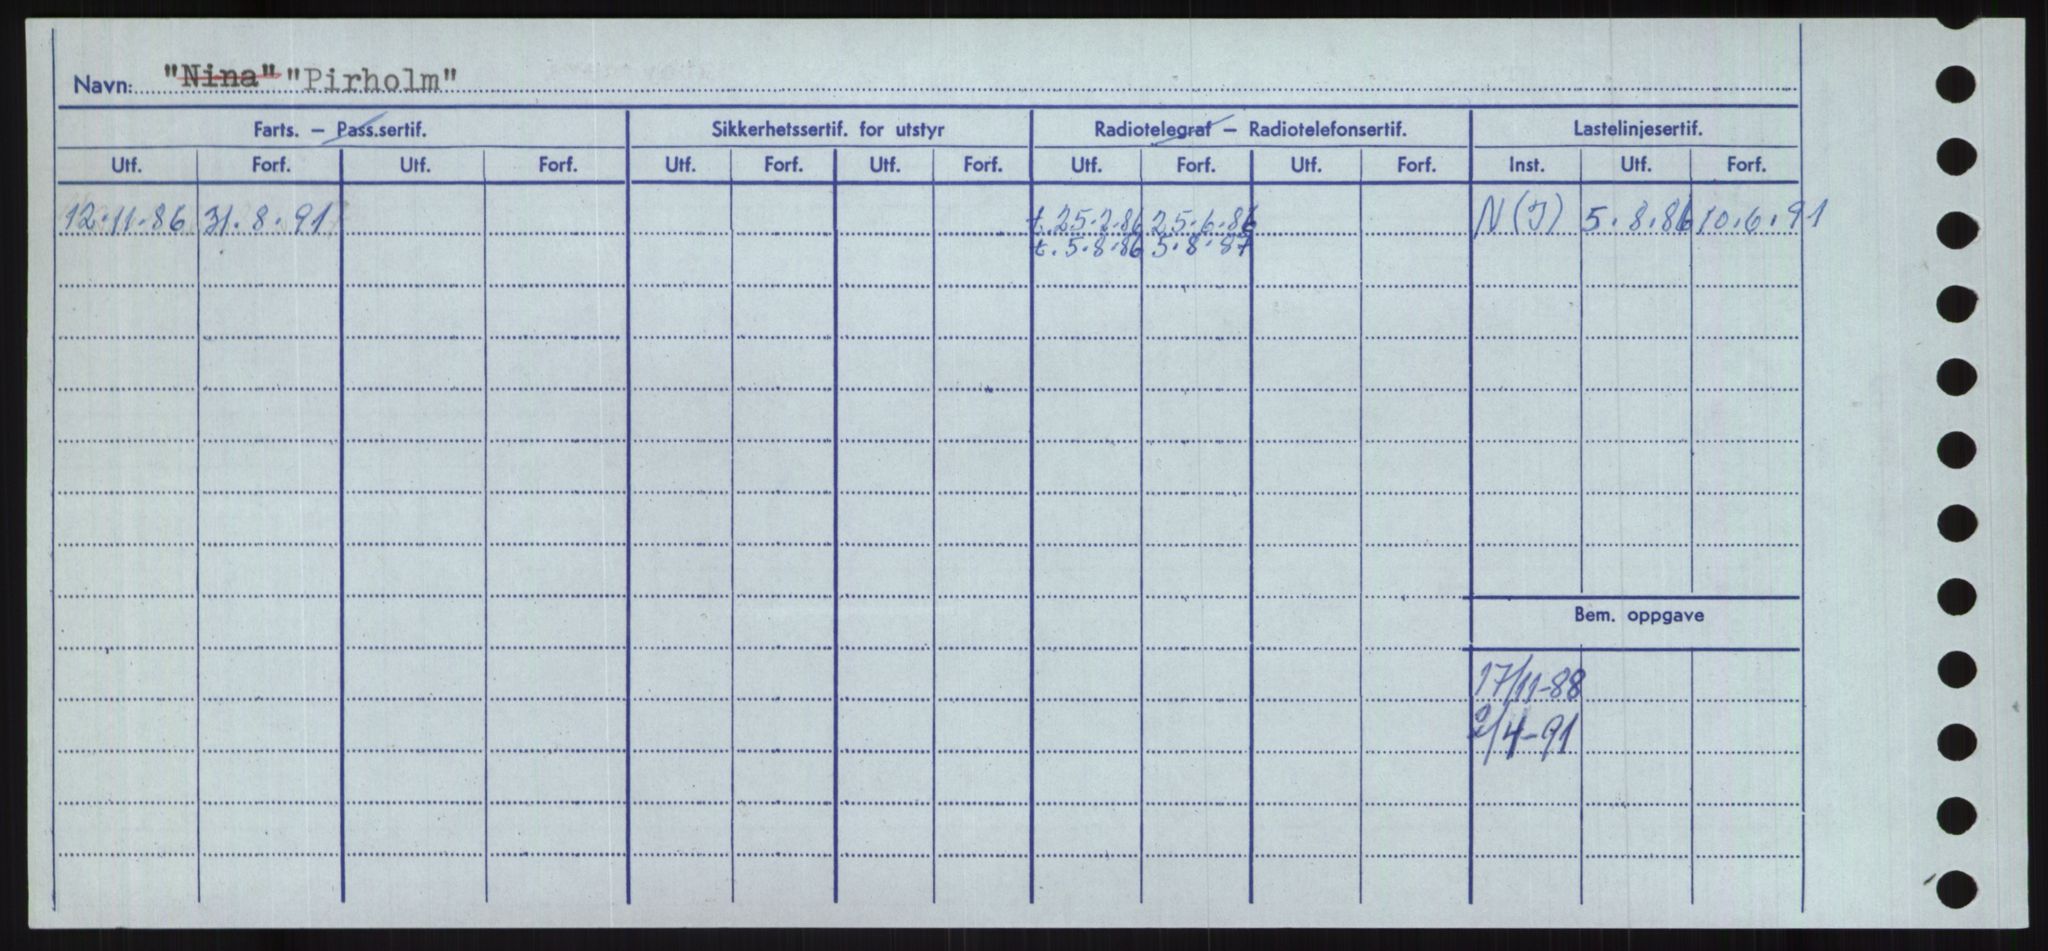 Navn: "Nina" "Pirholm"
Farts. – Pass.sertif. Sikkerhetssertif. for utstyr Radiotelegraf – Radiotelefonsertif. Lastelinjesertif.
Utf. Forf. Utf. Forf. Utf. Forf. Utf. Forf. Utf. Forf. Utf. Forf. Inst. Utf. Forf.
12.11.86 31.8.91 t.25.2.86 25.6.86 N (I) 5.8.86 10.6.91
t.5.8.86 5.8.87
Bem. oppgave
17/11-88
2/4-91